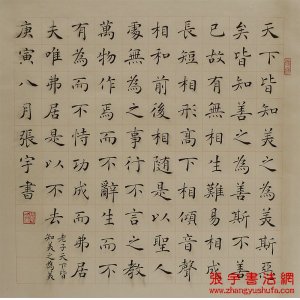 天下皆知美之為美斯惡
矣皆知善之為善斯不善
已故有無相生難易相成
長短相形高下相傾音聲
相和前後相隨是以聖人
處無為之事行不言之教
萬物作焉而不辭生而不
有為而不恃功成而弗居
夫唯弗居是以不去
庚寅八月張宇書
老子天下皆
知美之為美
張宇書法網
www.zhangyushufa.com